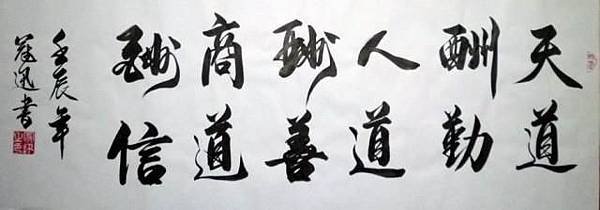 天道
酬勤
人道
酬善
商道
酬信
壬辰年
冠迅书